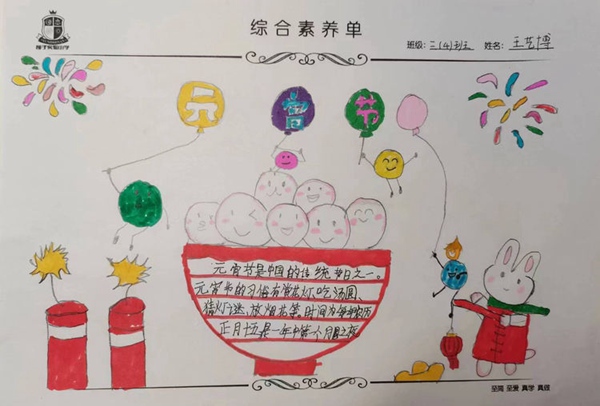 综合素养单
班级: 三(4)班 姓名: 王艺博
元宵节
元宵节是中国的传统节日之一。
元宵节的习俗有赏花灯、吃汤圆、
猜灯谜、放烟花等,时间为每年农历
正月十五是一年中第一个月圆之夜
至简 至爱 真学 真做